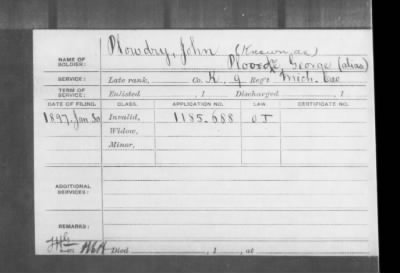 Plowdry, John (Known as)
NAME OF SOLDIER: George (alias)
SERVICE: Late rank, Co. K, 9 Reg't Mich. Cav
TERM OF SERVICE: Enlisted , 1 Discharged , 1
DATE OF FILING. CLASS. APPLICATION NO. LAW. CERTIFICATE NO.
1897, Jan. 30 Invalid, 1185.688
Widow,
Minor,
ADDITIONAL SERVICES:
REMARKS:
Died , 1 , at